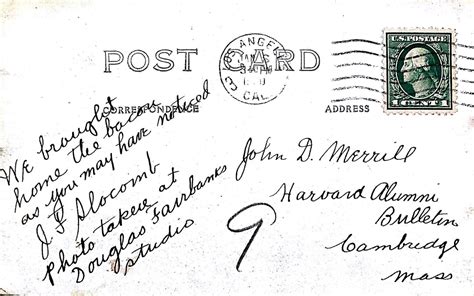 POST CARD
LOS ANGELES
CAL.
U.S. POSTAGE
CORRESPONDENCE
ADDRESS
We brought
home the bacon
as you may have noticed
J F Slocomb
Photo taken at
Douglas Fairbanks
studio
John D. Merrill
Harvard Alumni
Bulletin
Cambridge
Mass
9